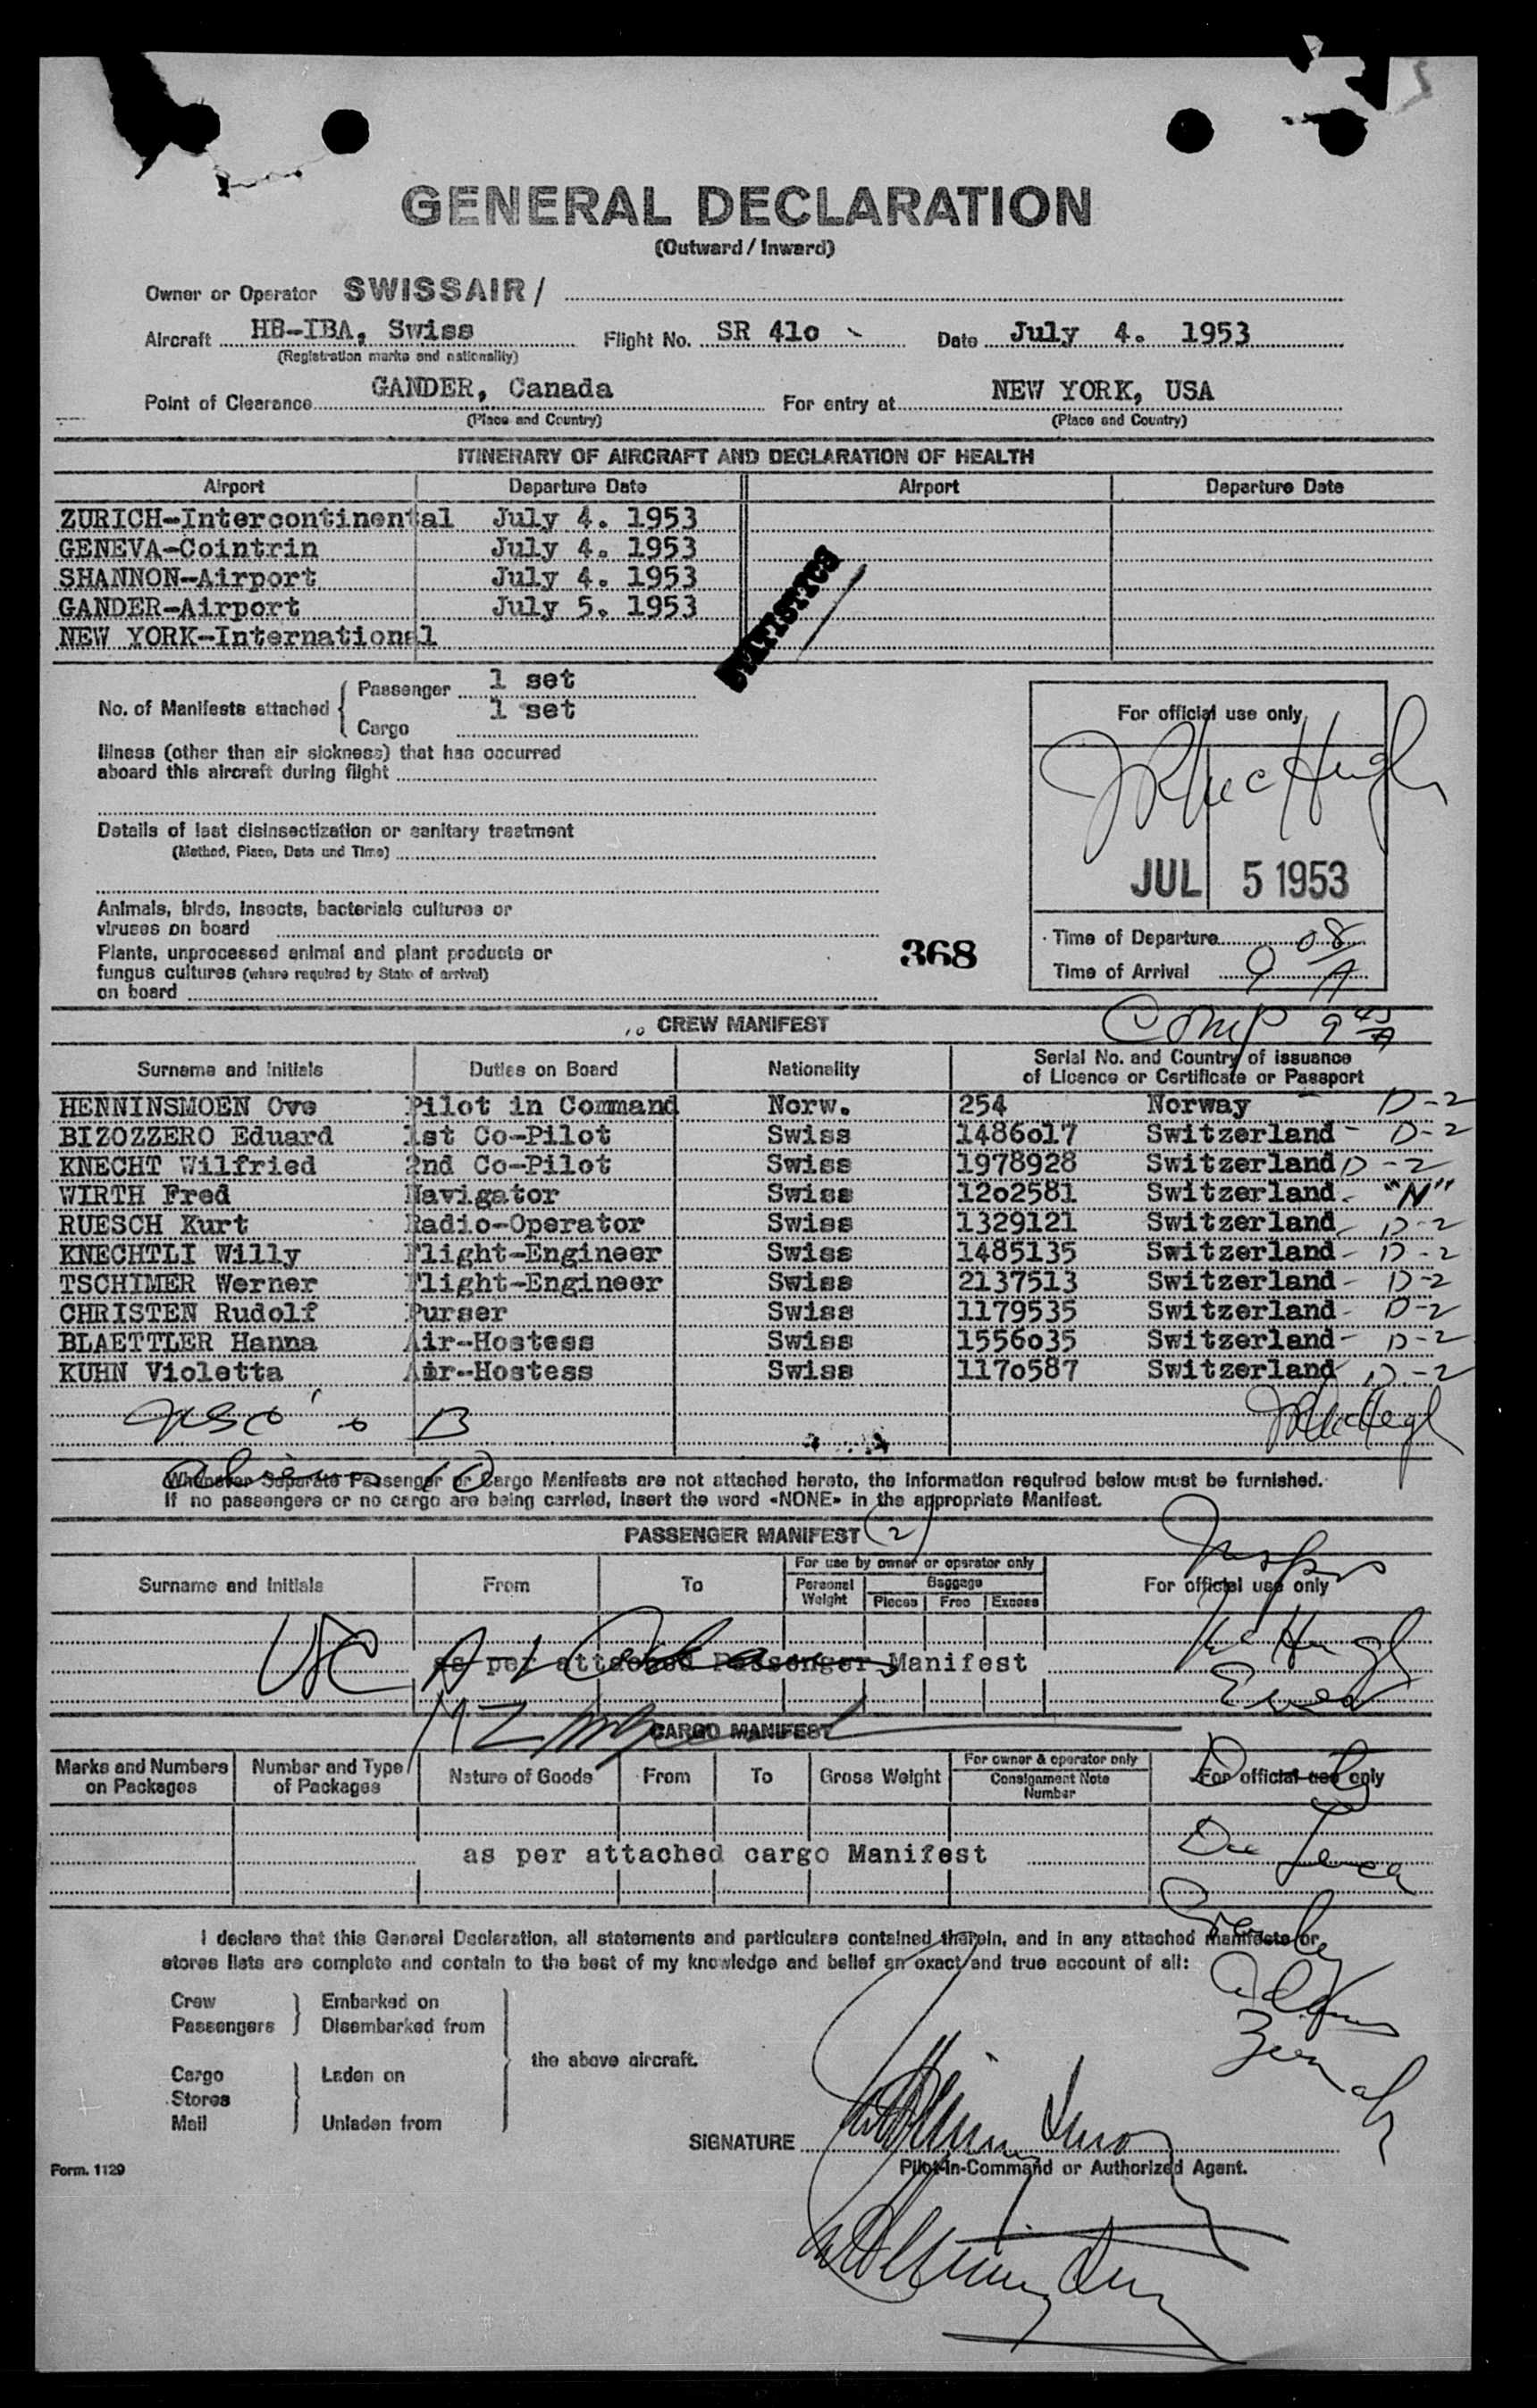 GENERAL DECLARATION
(Outward / Inward)
Owner or Operator SWISSAIR /
Aircraft HB-IBA, Swiss Flight No. SR 41o Date July 4. 1953
(Registration marks and nationality)
Point of Clearance GANDER, Canada For entry at NEW YORK, USA
(Place and Country) (Place and Country)
ITINERARY OF AIRCRAFT AND DECLARATION OF HEALTH
Airport Departure Date Airport Departure Date
ZURICH-Intercontinental July 4. 1953
GENEVA-Cointrin July 4. 1953
SHANNON-Airport July 4. 1953
GANDER-Airport July 5. 1953
NEW YORK-International
STATISTICS
No. of Manifests attached { Passenger 1 set
Cargo 1 set
Illness (other than air sickness) that has occurred
aboard this aircraft during flight
Details of last disinsectization or sanitary treatment
(Method, Place, Date and Time)
Animals, birds, insects, bacterials cultures or
viruses on board
Plants, unprocessed animal and plant products or
fungus cultures (where required by State of arrival)
on board
368
For official use only
JUL 5 1953
Time of Departure
Time of Arrival 9 08 A
Comp 9 45 A
10 CREW MANIFEST
Surname and Initials Duties on Board Nationality Serial No. and Country of issuance
of Licence or Certificate or Passport
HENNINSMOEN Ove Pilot in Command Norw. 254 Norway - D-2
BIZOZZERO Eduard 1st Co-Pilot Swiss 1486o17 Switzerland - D-2
KNECHT Wilfried 2nd Co-Pilot Swiss 1978928 Switzerland D-2
WIRTH Fred Navigator Swiss 12o2581 Switzerland - "N"
RUESCH Kurt Radio-Operator Swiss 1329121 Switzerland - D-2
KNECHTLI Willy Flight-Engineer Swiss 1485135 Switzerland - D-2
TSCHIMER Werner Flight-Engineer Swiss 2137513 Switzerland - D-2
CHRISTEN Rudolf Purser Swiss 1179535 Switzerland - D-2
BLAETTLER Hanna Air-Hostess Swiss 1556o35 Switzerland - D-2
KUHN Violetta Air-Hostess Swiss 117o587 Switzerland D-2
Whenever Separate Passenger or Cargo Manifests are not attached hereto, the information required below must be furnished.
If no passengers or no cargo are being carried, insert the word «NONE» in the appropriate Manifest.
PASSENGER MANIFEST (2)
Surname and Initials From To For use by owner or operator only For official use only
Personal Weight Baggage
Pieces Free Excess
as per attached Passenger Manifest
CARGO MANIFEST
Marks and Numbers on Packages Number and Type of Packages Nature of Goods From To Gross Weight For owner & operator only For official use only
Consignment Note Number
as per attached cargo Manifest
I declare that this General Declaration, all statements and particulars contained therein, and in any attached manifests or
stores lists are complete and contain to the best of my knowledge and belief an exact and true account of all:
Crew } Embarked on
Passengers } Disembarked from
the above aircraft.
Cargo Laden on
Stores
Mail Unladen from
SIGNATURE
Pilot-in-Command or Authorized Agent.
Form. 1129